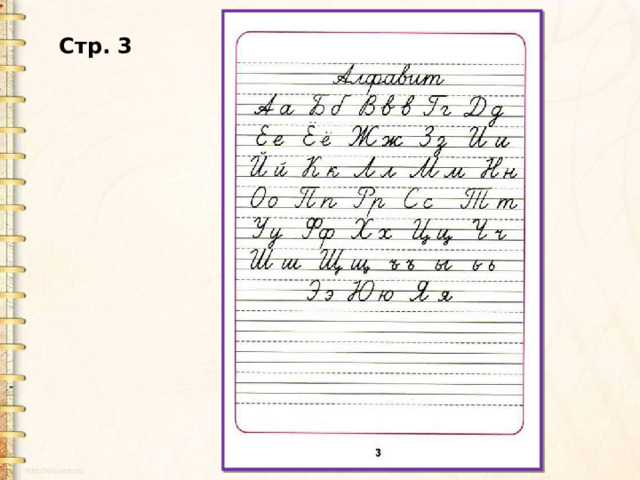 Стр. 3
Алфавит
А а Б б В в в Г г Д д
Е е Ё ё Ж ж З з И и
Й й К к Л л М м Н н
О о П п Р р С с Т т
У у Ф ф Х х Ц ц Ч ч
Ш ш Щ щ ъ ъ ы ь ь
Э э Ю ю Я я
3